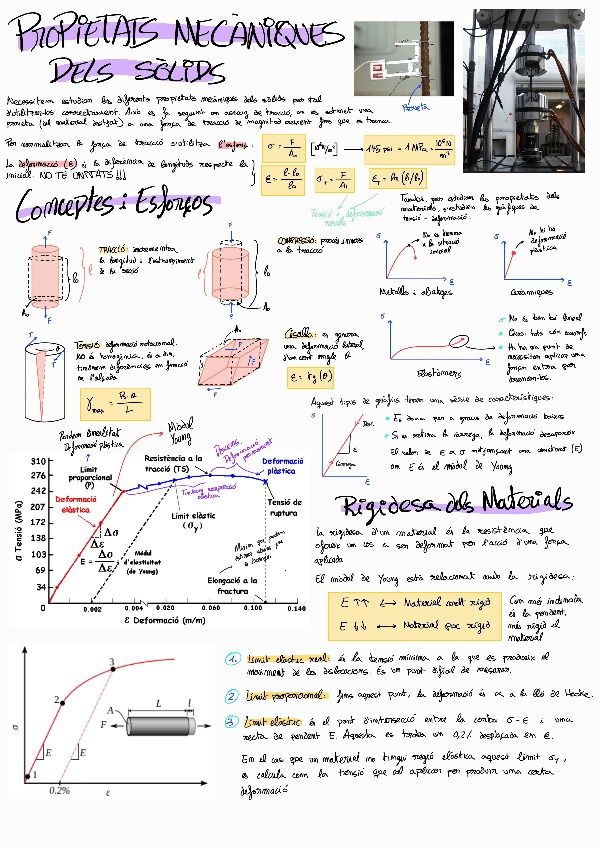 PROPIETATS MECÀNIQUES
DELS SÒLIDS
Necessitem estudiar les diferents propietats mecàniques dels sòlids per tal
d'utilitzar-los correctament. Això es fa seguint un assaig de tracció, on es sotmet una
proveta (del material desitjat) a una força de tracció de magnitud creixent fins que es trenca.
Proveta
Per normalitzar la força de tracció s'utilitza l'esforç.
La deformació (ε) és la diferència de longituds respecte la
inicial. NO TÉ UNITATS!!!
σ = F/A₀
[N/m²]
145 psi = 1 MPa = 10⁶N/m²
ε = l-l₀/l₀
σᵣ = F/Aᵢ
εᵣ = ln(lᵢ/l₀)
Tensió i deformació
reals
Conceptes i Esforços
TRACCIÓ: incrementa
la longitud i l'estrenyiment
de la secció
F
l
l₀
A₀
F
COMPRESSIÓ: procés invers
a la tracció
També, per estudiar les propietats dels
materials, s'estudien les gràfiques de
tensió-deformació:
No es torna
a la situació
inicial
Metalls i aliatges
No hi ha
deformació
plàstica
Ceràmiques
TENSIÓ: deformació rotacional.
NO és homogènia, és a dir,
tindrem diferències en funció
de l'alçada
γmax = R·α/L
Cisalla: es genera
una deformació lateral,
d'un cert angle θ
ε = tg(θ)
Elastòmers
No és ben bé lineal
Quasi tots són
Hi ha un punt de
necessitar aplicar una
força extra per
Aquest tipus de gràfics tenen una sèrie de característiques:
Es dona per a graus de deformació baixos
Si es retira la càrrega, la deformació desapareix
El valor de ε α σ mitjançant una constant (E)
on E és el mòdul de Young
Des.
Càrrega
Perdem linealitat
Deformació plàstica
Mòdul
Young
Límit
proporcional
(P)
Resistència a la
tracció (TS)
Procés
Deformació
permanent
Deformació
plàstica
Deformació
elàstica
Límit elàstic
(σy)
Tensió de
ruptura
E = Δσ/Δε
Mòdul
d'elasticitat
(de Young)
Elongació a la
fractura
σ Tensió (MPa)
310
276
242
207
172
138
103
69
34
0
0.002
0.004
0.020
0.060
0.100
0.140
ε Deformació (m/m)
Rigidesa dels Materials
La rigidesa d'un material és la resistència que
ofereix un cos a ser deformat per l'acció d'una força
aplicada
El mòdul de Young està relacionat amb la rigidesa:
E ↑↑ ↔ Material molt rígid
E ↓↓ ↔ Material poc rígid
Com més inclinada
és la pendent,
més rígid el
material
1. Límit elàstic real: és la tensió mínima a la que es produeix el
moviment de les dislocacions. És un punt difícil de mesurar.
2. Límit proporcional: fins aquest punt, la deformació és α a la llei de Hooke.
3. Límit elàstic és el punt d'intersecció entre la corba σ-ε i una
recta de pendent E. Aquesta es troba un 0,2% desplaçada en ε.
En el cas que un material no tingui regió elàstica aquest límit σy,
es calcula com la tensió que cal aplicar per produir una certa
deformació
σ
1
2
3
E
E
0.2%
ε
A
L
l
F